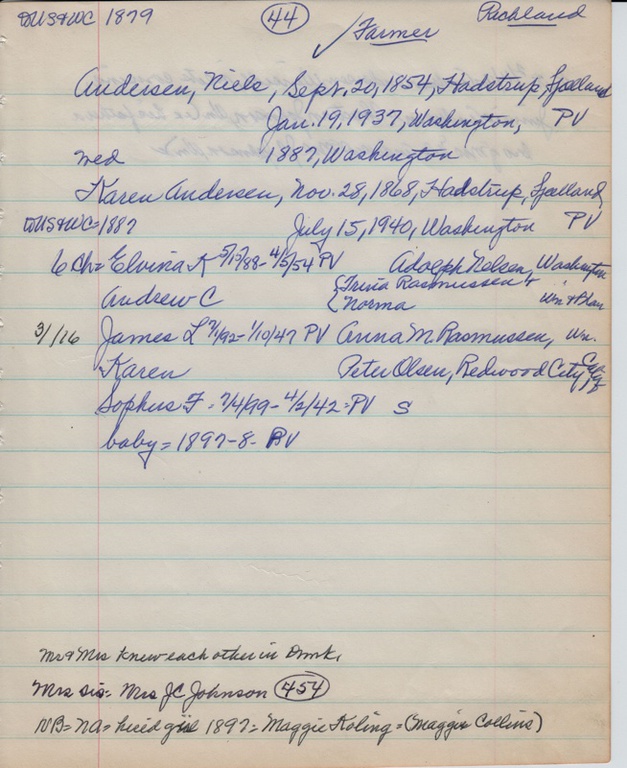 DUS&WC 1879 44 Richland
✓ Farmer
Andersen, Niels, Sept. 20, 1854, Hadstrup, Sjælland
Jan. 19, 1937, Washington, PV
wed 1887, Washington
Karen Andersen, Nov. 28, 1868, Hadstrup, Sjælland,
DUS&WC=1887 July 15, 1940, Washington PV
6 Ch= Elvina K - 4/5/54 PV Adolph Nelsen, Washington
Andrew C { Trina Rasmussen + Norma Wn + Blair
3/16 James L 7/92- 1/10/47 PV Anna M. Rasmussen, Wn.
Karen Peter Olsen, Redwood City,
Sophus F - 7/4/99 - 4/2/42 = PV S
baby = 1897-8- PV
Mr & Mrs knew each other in Dmk.
Mrs sis= Mrs JC Johnson 454
NB= NA= hired girl 1897= Maggie Koling = (Maggie Collins)